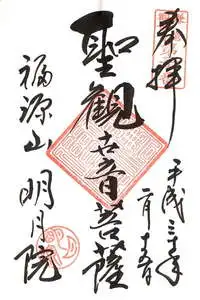 奉拝
平成三十年
二月十五日
聖観世音菩薩
福源山
明月院